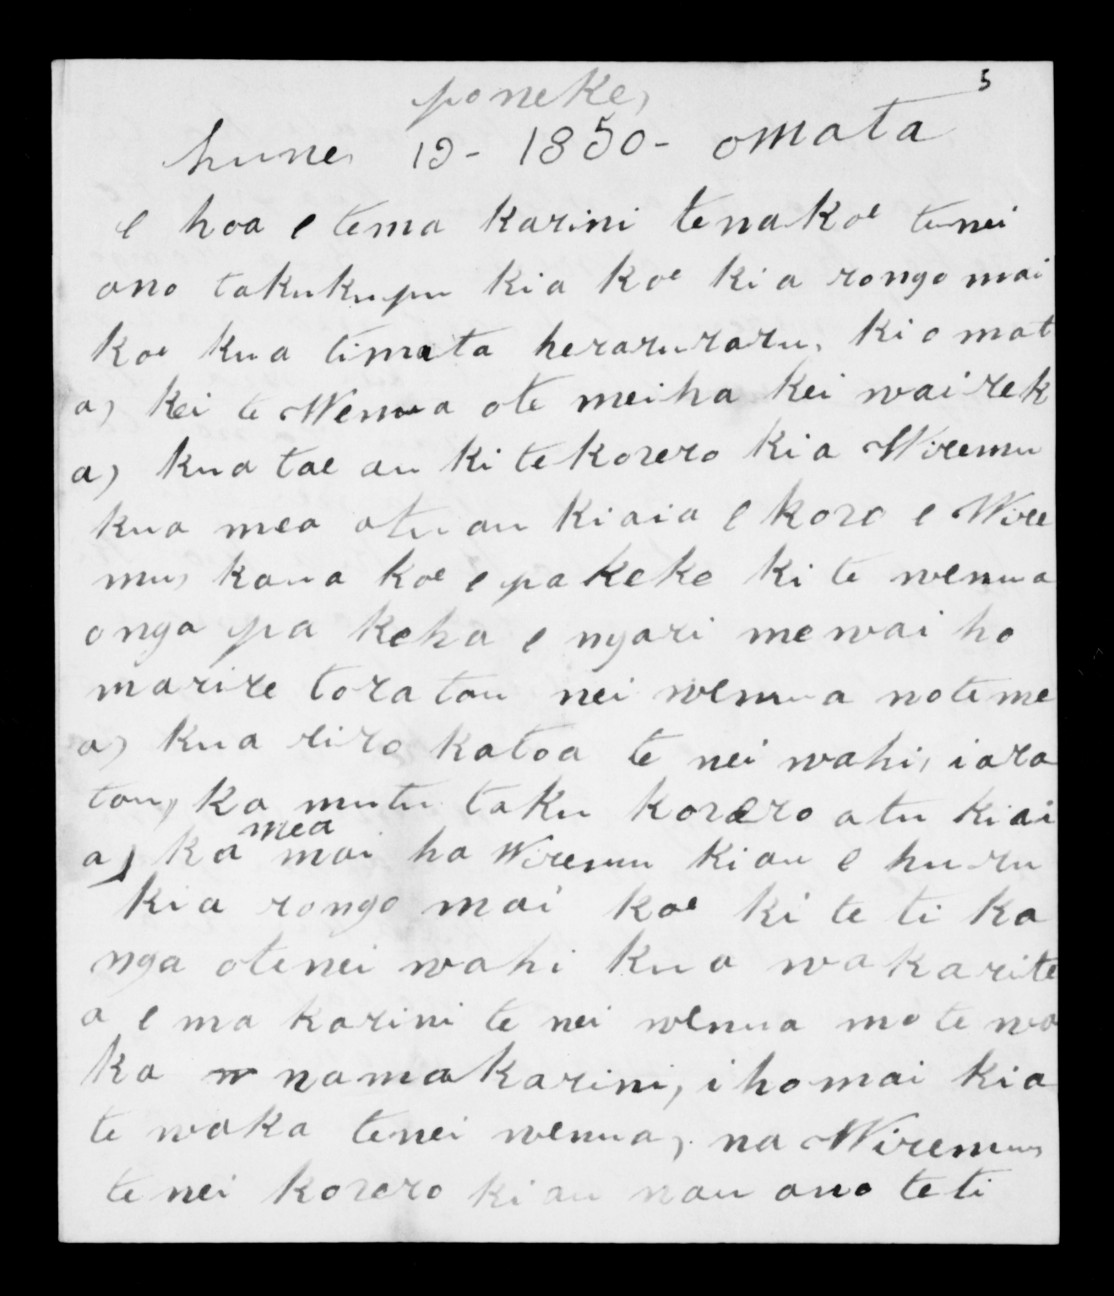 5
poneke,
hune 19 - 1850 - omata
e hoa e tema karini tenakoe tenei
ano takukupu kia koe kia rongo mai
koe kua timata heraruraru, ki o mat
a, kei te Wenua ote meiha kei wairek
a, kua tae au ki te korero kia Wiremu
kua mea atu au kiaia e koro e Wire
mu, kaua koe e pakeke ki te wenua
onga pa keha e ngari me wai ho
marire toratou nei wenua note me
a, kua riro katoa te nei wahi, iara
tou, ka mutu taku korero atu kiai
a, ka mea mai ha Wiremu kiau e huru
kia rongo mai koe ki te ti ka
nga otenei wahi kua wakarite
a e ma karini te nei wenua mo te wa
ka na ma karini, i homai kia
te waka tenei wenua, na Wiremu,
te nei korero ki au nau ano te ti